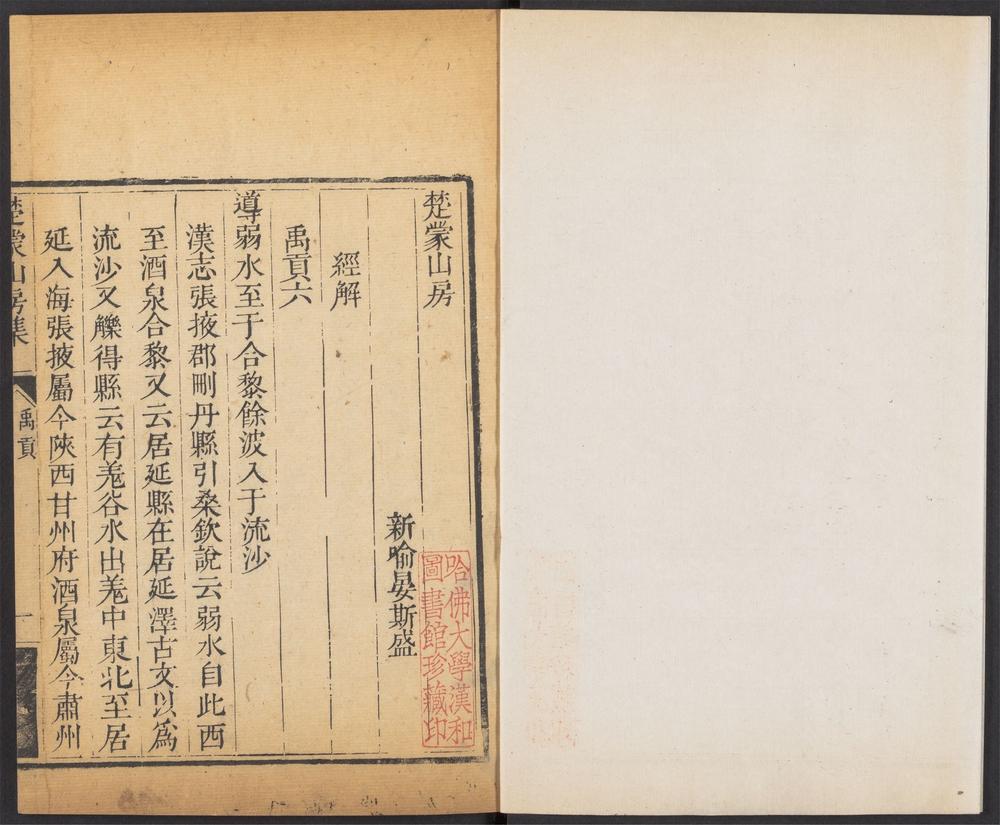 楚蒙山房
新喻晏斯盛
哈佛大學漢和
圖書館珍藏印
經解
禹貢六
導弱水至于合黎餘波入于流沙
漢志張掖郡刪丹縣引桑欽說云弱水自此西
至酒泉合黎又云居延縣在居延澤古文以為
流沙又觻得縣云有羗谷水出羗中東北至居
延入海張掖屬今陝西甘州府酒泉屬今肅州
楚蒙山房集
禹貢
一